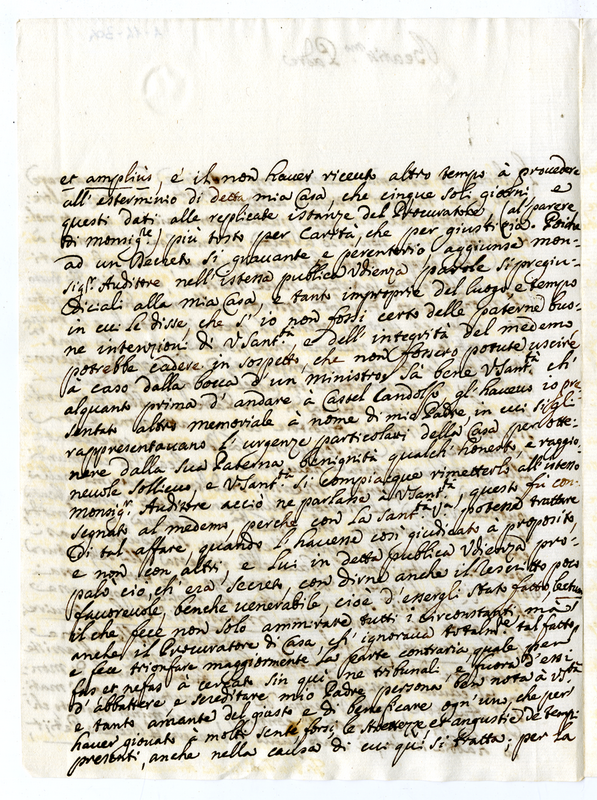 et amplius, e il non haver riceuto altro tempo à provedere
all' esterminio di detta mia Casa, che cinque soli giorni, e
questi dati alle replicate istanze del Procuratore (al parere
di monsig.re) più tosto per Carità, che per giustitia. Poiche
ad un Decreto si gravante, e perentorio aggiunse mon-
sig.r Auditore nell' istessa publica Udienza parole si pregiu-
diciali alla mia Casa, e tanto improprie del luogo, e tempo
in cui le disse, che s' io non fossi certo delle paterne buo-
ne intenzioni di V. Sant.tà e dell' integrità del medemo
potrebbe cadere in sospetto, che non fossero potute uscire
à caso dalla bocca d' un ministro. Sà bene V. Sant.tà ch'
alquanto prima d' andare à Castel Gandolfo gl' havevo io pre-
sentato altro memoriale à nome di mio Padre in cui se gli
rappresentavano l' urgenze particolari della Casa per otte-
nere dalla Sua Paterna benignità qualch' honesto, e raggio-
nevole sollievo, e V. Sant.tà si compiacque rimetterlo all' istesso
monsig.r Auditore acciò ne parlasse à V. Sant.tà, questo fù con-
segnato al medemo perche con la Sant.tà V.a potesse trattare
di tal affare, quando l' havesse così giudicato à proposito,
e non con altri, e lui in detta publica Udienza pro-
palò ciò, ch' era secreto con dirne anche il Rescritto poco
favorevole, benche venerabile, cioè d' essergli stato fatto
il che fece non solo ammirare tutti i circostanti, mà
anche il Procuratore di Casa, ch' ignorava totalm.te tal fatto,
e fece trionfare maggiormente la parte contraria quale per
fas et nefas à cercato sin qui ne tribunali, e fuora d' essi
d' abbattere, e sereditare mio Padre, persona ben nota à V. S.tà
e tanto amante del giusto e di beneficare ogn' uno, che per
haver giovato à molti sente forsi le strettezze et angustie de tempi
presenti, anche nella causa di cui quì si tratta; per la